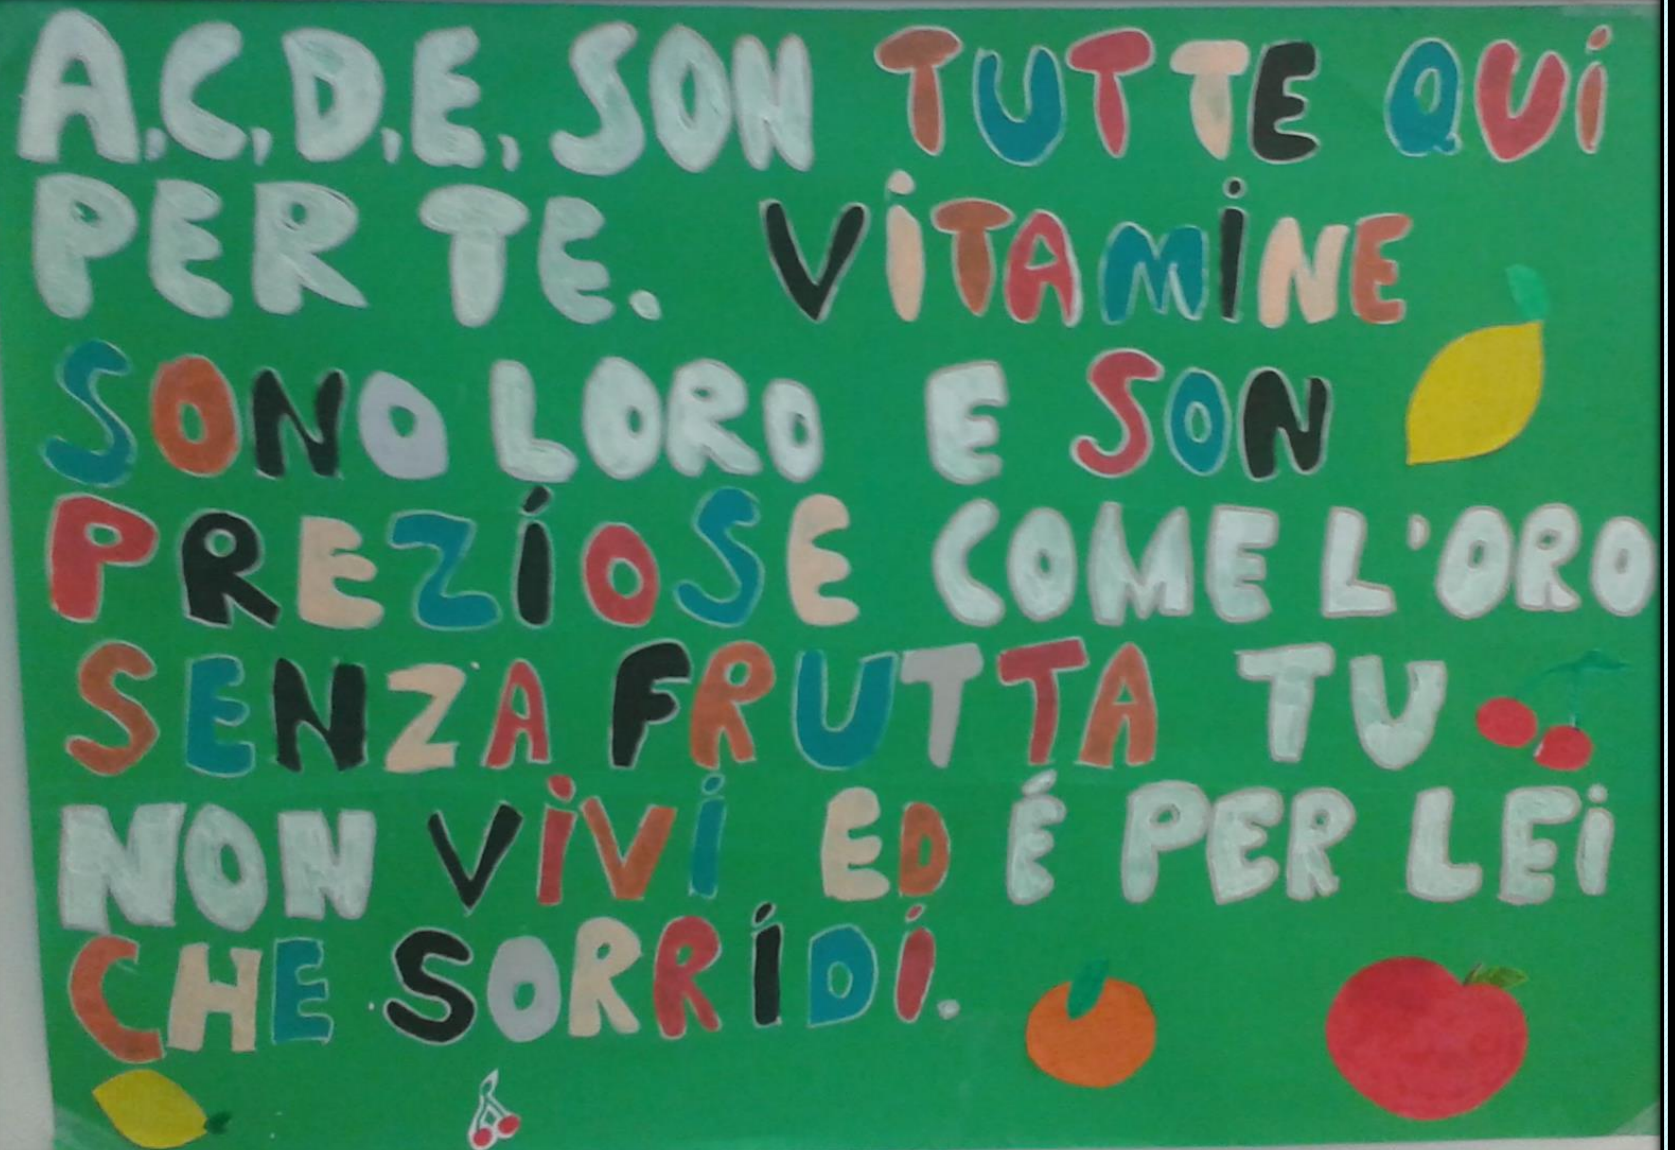 A.C.D.E. SON TUTTE QUi
PER TE. ViTAMiNE
SONO LORO E SON
PREZiOSE COME L'ORO
SENZA FRUTTA TU
NON ViVi ED É PER LEi
CHE SORRiDi.